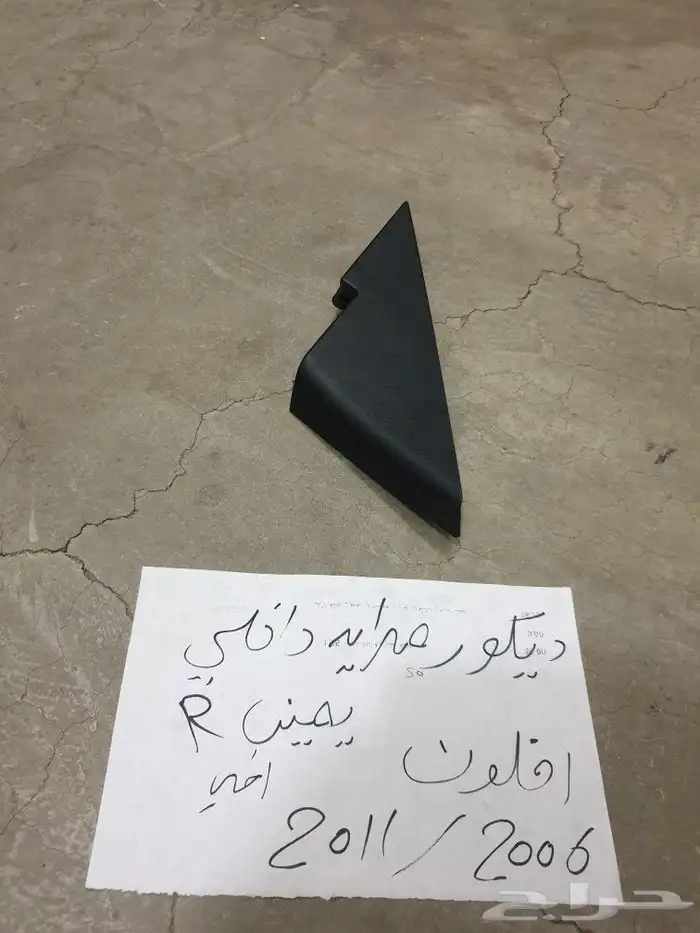 ديكور مرايه داخلي
يمين R
افلون
اصلي
2011/2006
حراج